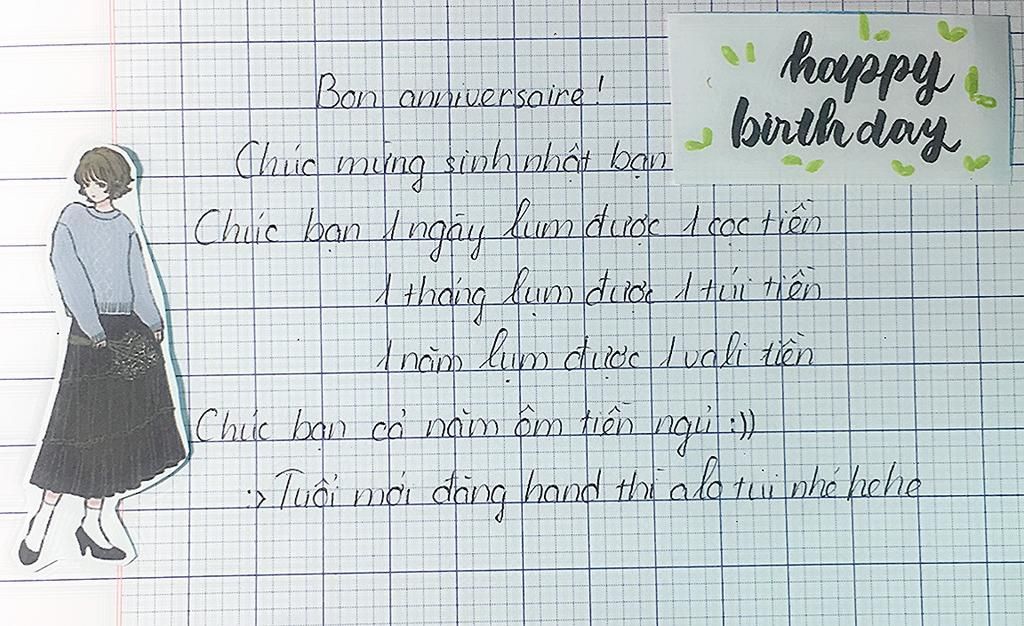 happy
birthday
Bon anniversaire!
Chúc mừng sinh nhật bạn
Chúc bạn 1 ngày lụm được 1 cọc tiền
1 tháng lụm được 1 túi tiền
1 năm lụm được 1 vali tiền
Chúc bạn cả năm ôm tiền ngủ :))
:> Tuổi mới đăng hand thì alo tui nhé hehe